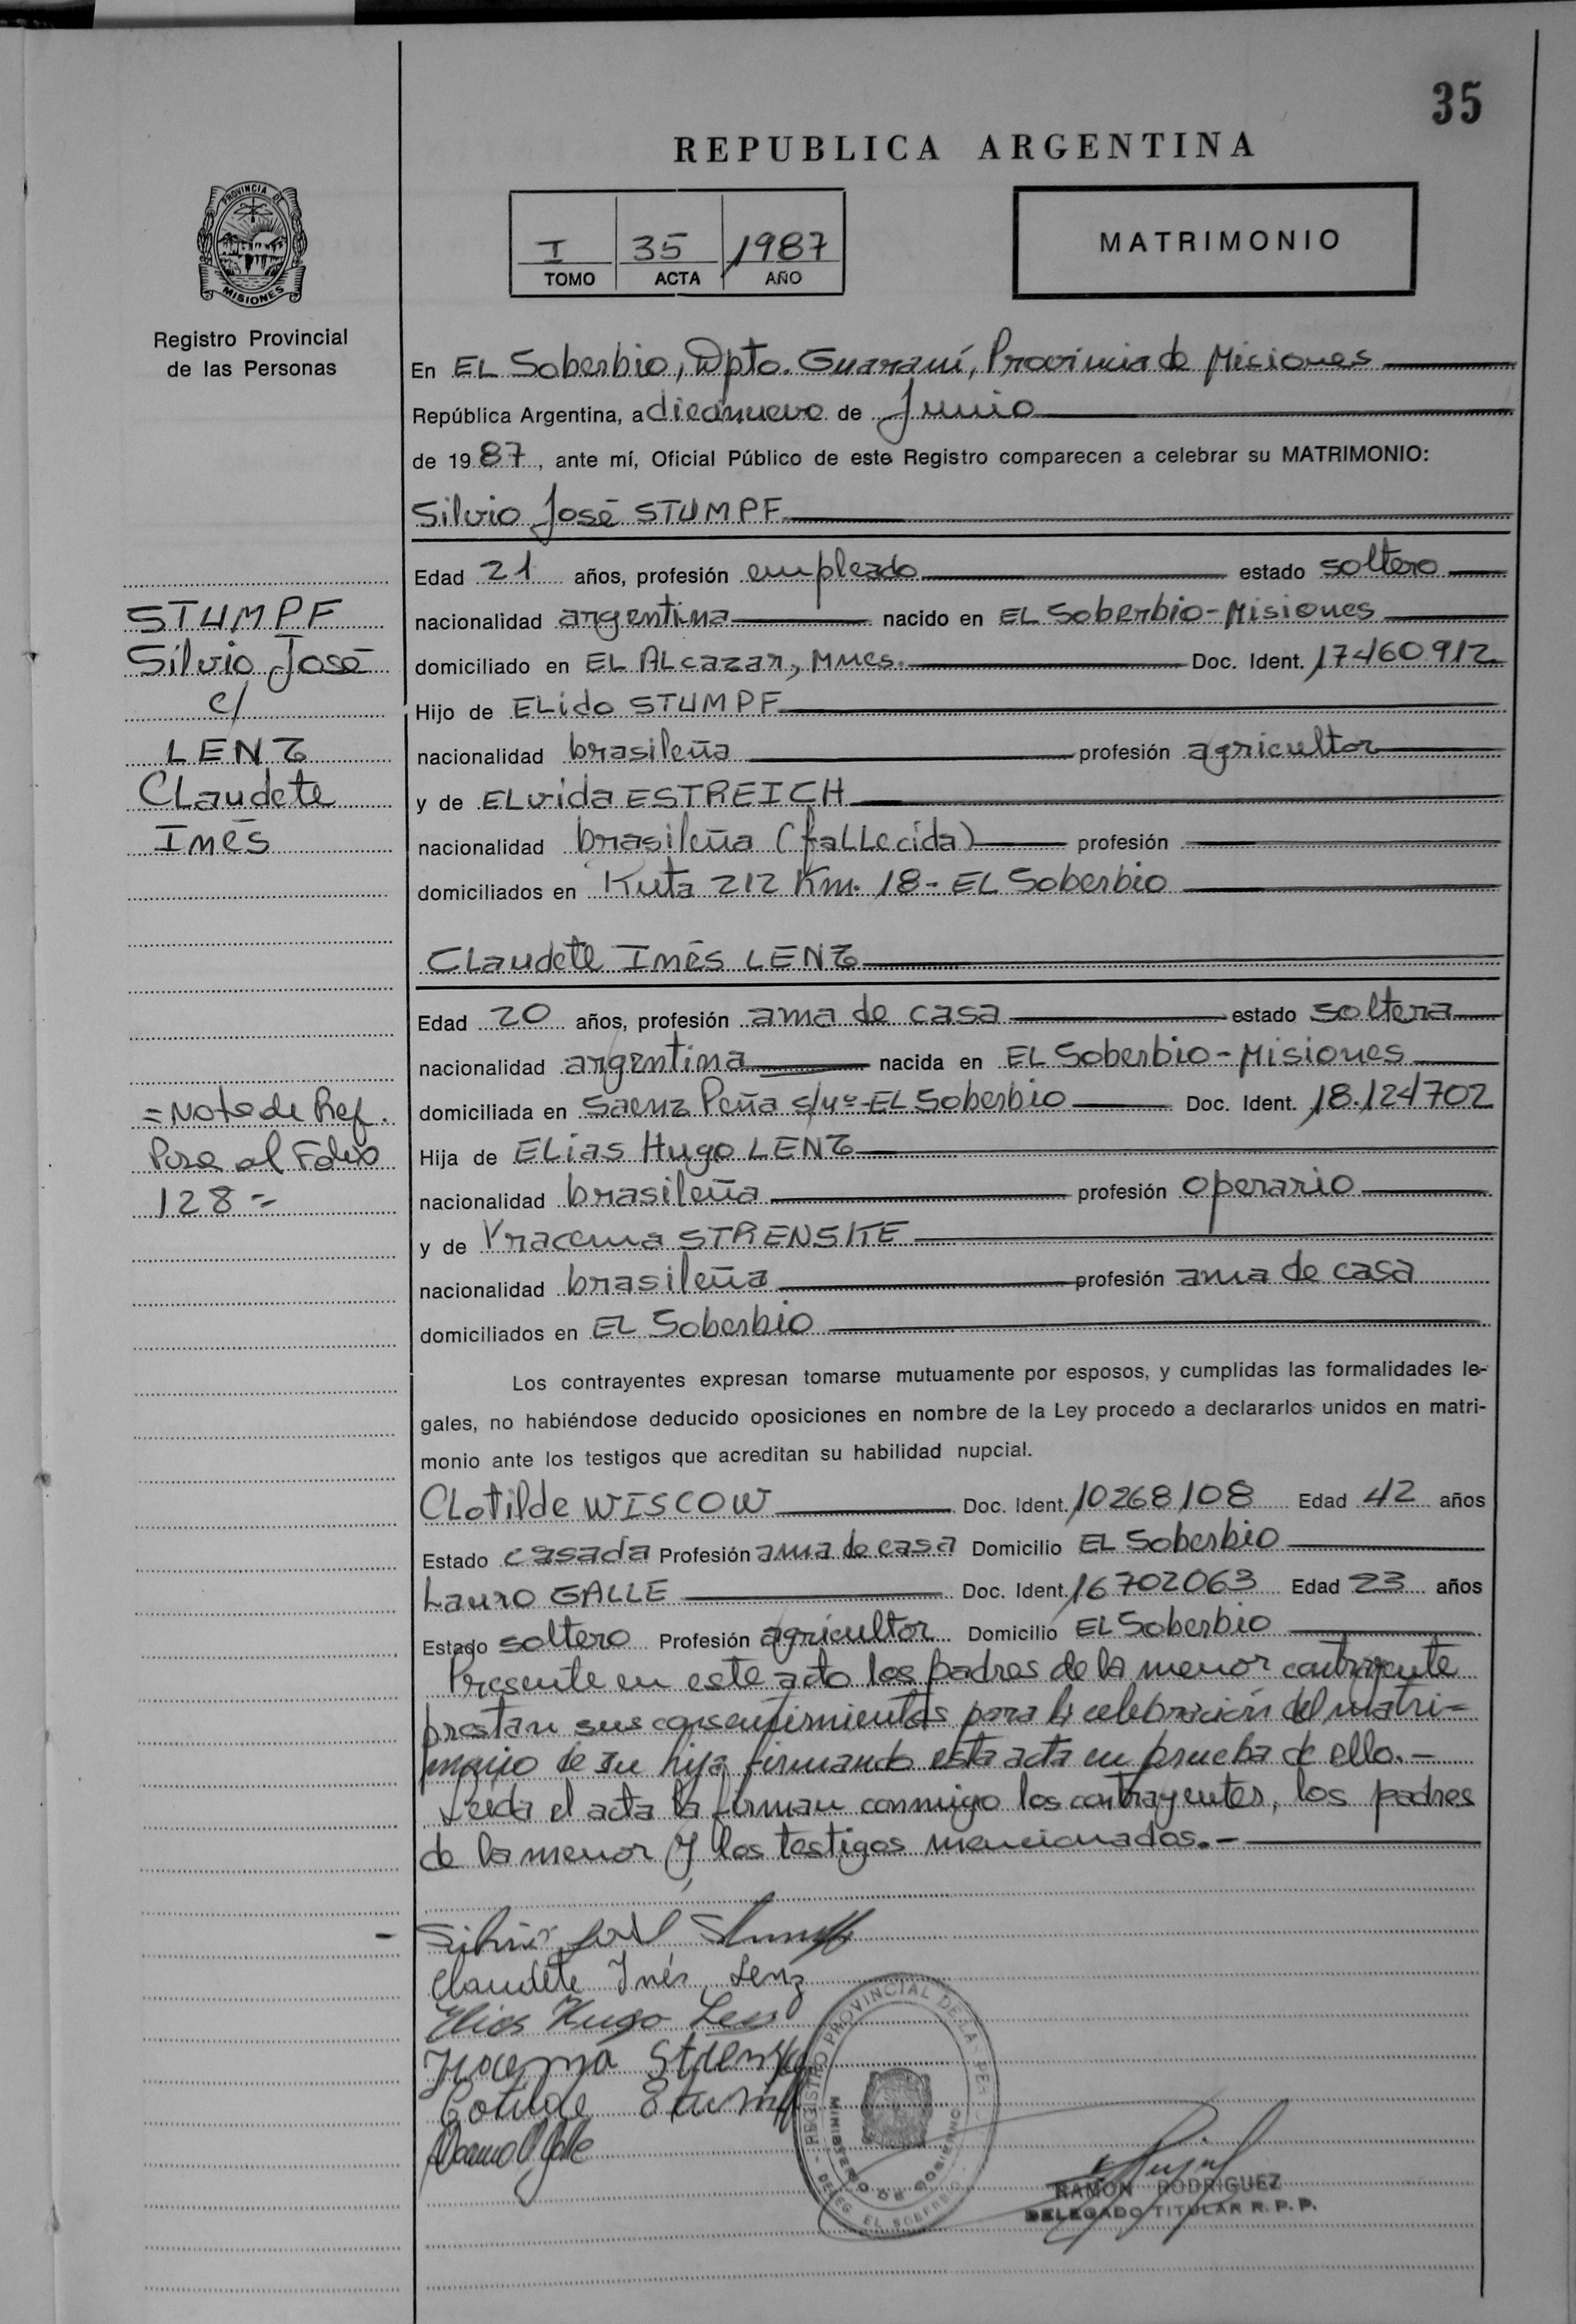 35
REPUBLICA ARGENTINA
PROVINCIA DE
MISIONES
I 35 1987
TOMO ACTA AÑO
MATRIMONIO
Registro Provincial
de las Personas
En EL Soberbio, Dpto. Guaraní, Provincia de Misiones
República Argentina, a diecinueve de Junio
de 1987, ante mí, Oficial Público de este Registro comparecen a celebrar su MATRIMONIO:
Silvio José STUMPF
Edad 21 años, profesión empleado estado soltero
nacionalidad argentina nacido en EL Soberbio-Misiones
domiciliado en EL ALcazar, Mnes. Doc. Ident. 17460912
Hijo de ELido STUMPF
nacionalidad brasileña profesión agricultor
y de ELvida ESTREICH
nacionalidad brasileña (faLLecida) profesión
domiciliados en Ruta 212 Km. 18- EL Soberbio
STUMPF
Silvio José
c/
LENZ
CLaudete
Inés
CLaudete Inés LENZ
Edad 20 años, profesión ama de casa estado soltera
nacionalidad argentina nacida en EL Soberbio-Misiones
domiciliada en Saenz Peña s/nº-EL Soberbio Doc. Ident. 18.124702
Hija de ELias Hugo LENZ
nacionalidad brasileña profesión operario
y de Yracema STRENSKE
nacionalidad brasileña profesión ama de casa
domiciliados en EL Soberbio
=Nota de Ref.
Pasa al Folio
128=
Los contrayentes expresan tomarse mutuamente por esposos, y cumplidas las formalidades le-
gales, no habiéndose deducido oposiciones en nombre de la Ley procedo a declararlos unidos en matri-
monio ante los testigos que acreditan su habilidad nupcial.
CLotilde WISCOW Doc. Ident. 10268108 Edad 42 años
Estado casada Profesión ama de casa Domicilio EL Soberbio
Lauro GALLE Doc. Ident. 16702063 Edad 23 años
Estado soltero Profesión agricultor Domicilio EL Soberbio
Presente en este acto los padres de la menor contrayente
prestan sus consentimientos para la celebración del matri=
monio de su hija firmando esta acta en prueba de ello.-
Leida el acta la firman conmigo los contrayentes, los padres
de la menor y los testigos mencionados.-
Silvio José Stumpf
Claudete Inés Lenz
Elias Hugo Lenz
REGISTRO PROVINCIAL DE LAS PER
MINISTERIO DE GOBIERNO
DELEG. EL SOBERBIO
RAMON RODRIGUEZ
DELEGADO TITULAR R. P. P.